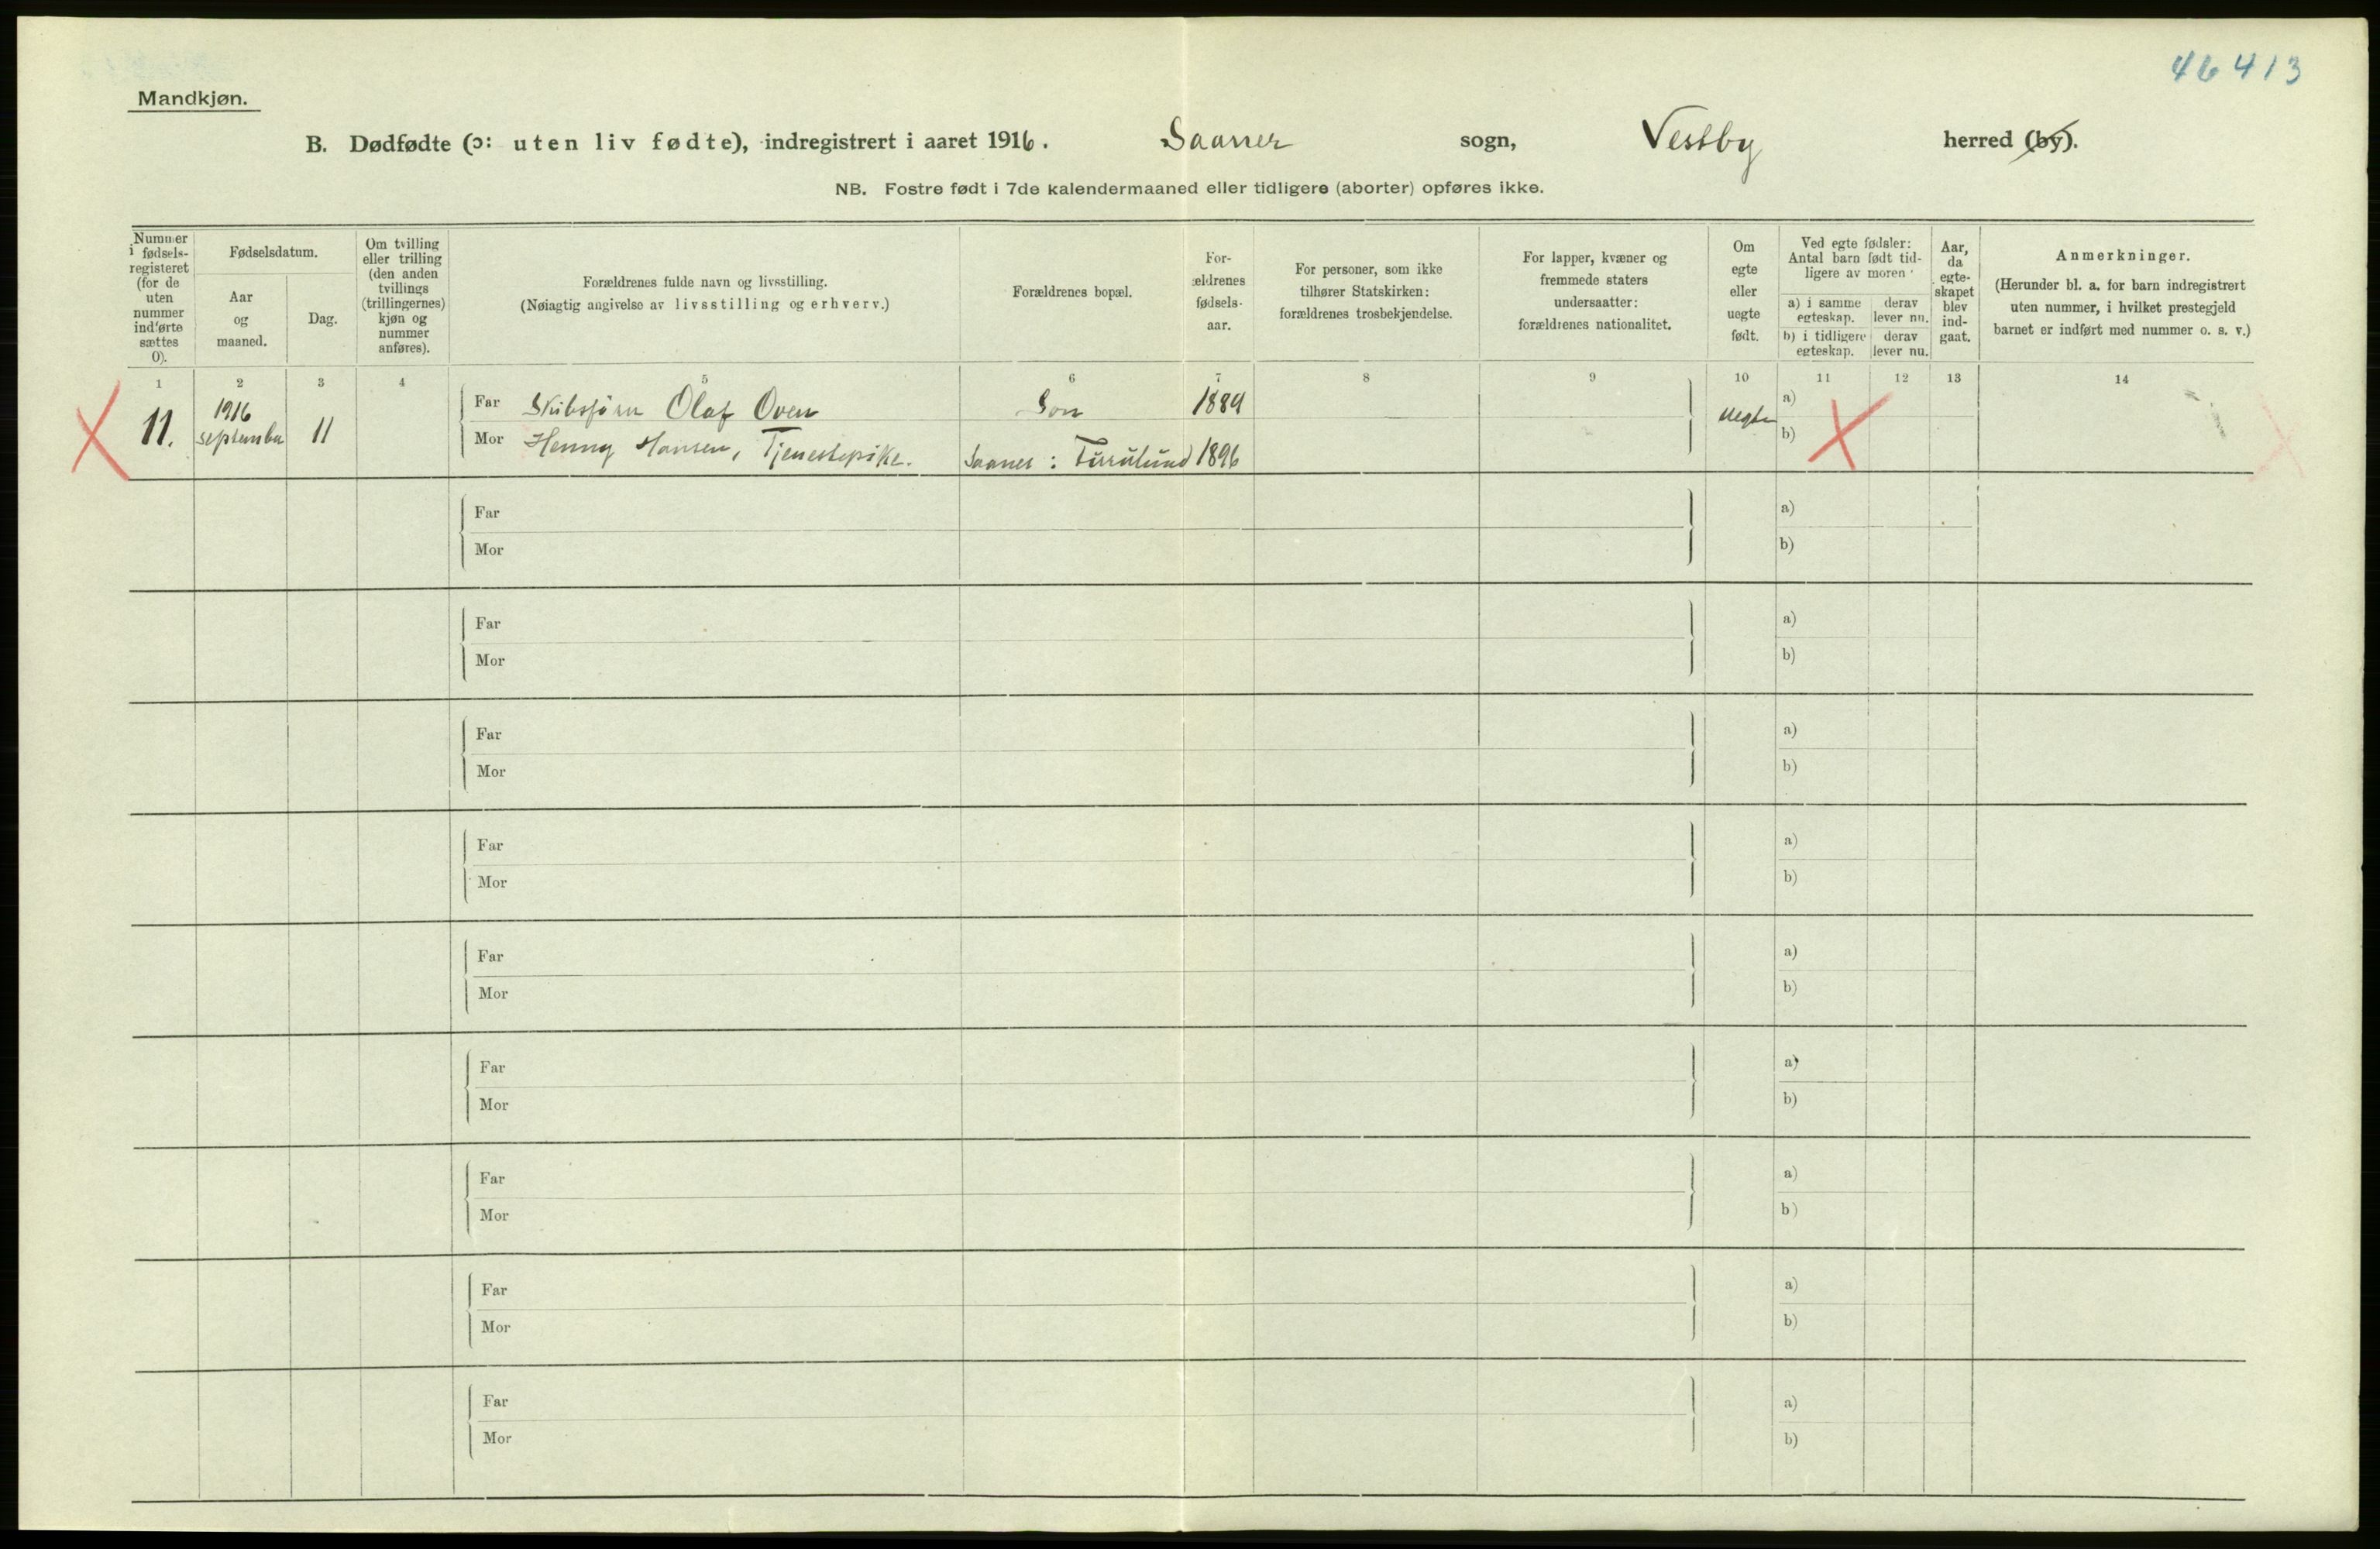 46413
Mandkjøn.
B. Dødfødte (ɔ: uten liv fødte), indregistrert i aaret 1916. Saaner sogn, Vestby herred (by).
NB. Fostre født i 7de kalendermaaned eller tidligere (aborter) opføres ikke.
Nummer i fødsels-registeret (for de uten nummer indførte sættes 0).
Fødselsdatum.
Aar og maaned.
Dag.
Om tvilling eller trilling (den anden tvillings (trillingernes) kjøn og nummer anføres).
Forældrenes fulde navn og livsstilling.
(Nøiagtig angivelse av livsstilling og erhverv.)
Forældrenes bopæl.
For-ældrenes fødsels-aar.
For personer, som ikke tilhører Statskirken: forældrenes trosbekjendelse.
For lapper, kvæner og fremmede staters undersaatter: forældrenes nationalitet.
Om egte eller uegte født.
Ved egte fødsler: Antal barn født tid-ligere av moren
a) i samme egteskap.
derav lever nu.
b) i tidligere egteskap.
derav lever nu.
Aar, da egte-skapet blev ind-gaat.
Anmerkninger.
(Herunder bl. a. for barn indregistrert uten nummer, i hvilket prestegjeld barnet er indført med nummer o. s. v.)
1 2 3 4 5 6 7 8 9 10 11 12 13 14
11. 1916 september 11
Far Olaf Oven Son 1889 uegte a)
Mor Henny Hansen, Tjenestepike. Saaner: 1896 b)
Far a)
Mor b)
Far a)
Mor b)
Far a)
Mor b)
Far a)
Mor b)
Far a)
Mor b)
Far a)
Mor b)
Far a)
Mor b)
Far a)
Mor b)
Far a)
Mor b)